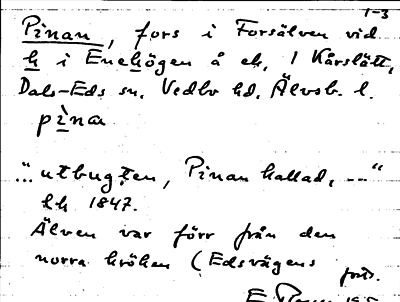 1-3
Pinan, fors i Forsälven vid
h i Enehögen å ek. 1 Kårslätt,
Dals-Eds sn. Vedbo hd. Älvsb. l.
pìna
"... utbugten, Pinan kallad, --"
hh 1847.
Älven var förr från den
norra kröken (Edsvägens
forts.